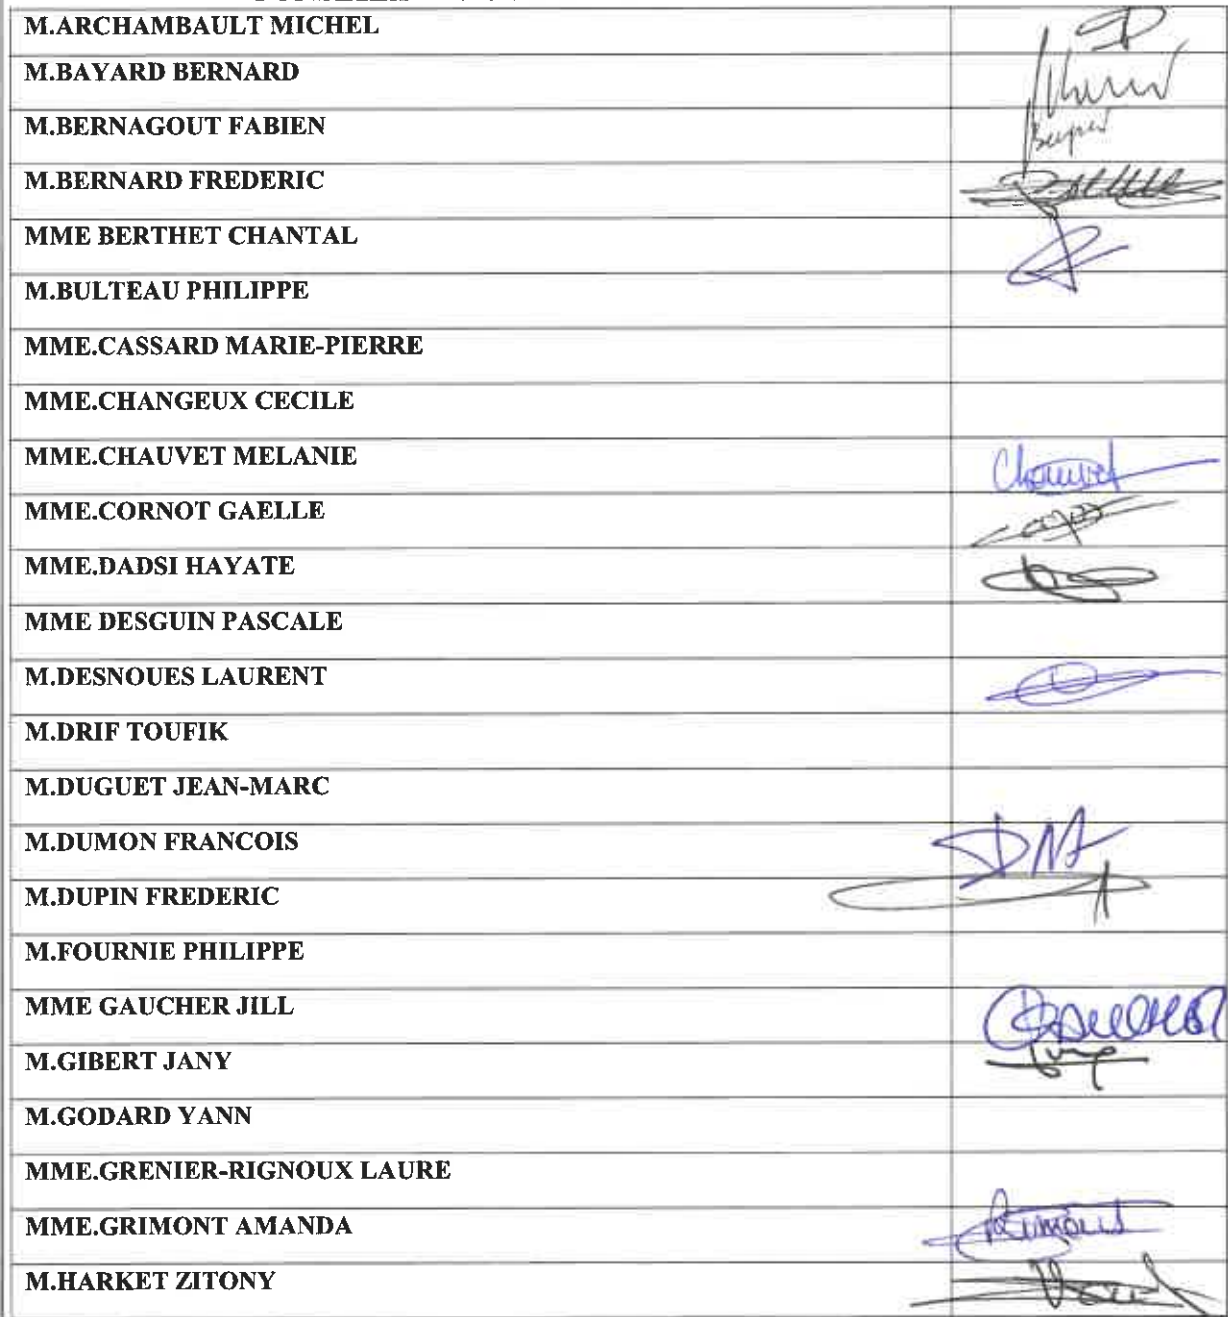 M.ARCHAMBAULT MICHEL
M.BAYARD BERNARD
M.BERNAGOUT FABIEN
M.BERNARD FREDERIC
MME BERTHET CHANTAL
M.BULTEAU PHILIPPE
MME.CASSARD MARIE-PIERRE
MME.CHANGEUX CECILE
MME.CHAUVET MELANIE Chauvet
MME.CORNOT GAELLE
MME.DADSI HAYATE
MME DESGUIN PASCALE
M.DESNOUES LAURENT
M.DRIF TOUFIK
M.DUGUET JEAN-MARC
M.DUMON FRANCOIS
M.DUPIN FREDERIC
M.FOURNIE PHILIPPE
MME GAUCHER JILL
M.GIBERT JANY
M.GODARD YANN
MME.GRENIER-RIGNOUX LAURE
MME.GRIMONT AMANDA
M.HARKET ZITONY